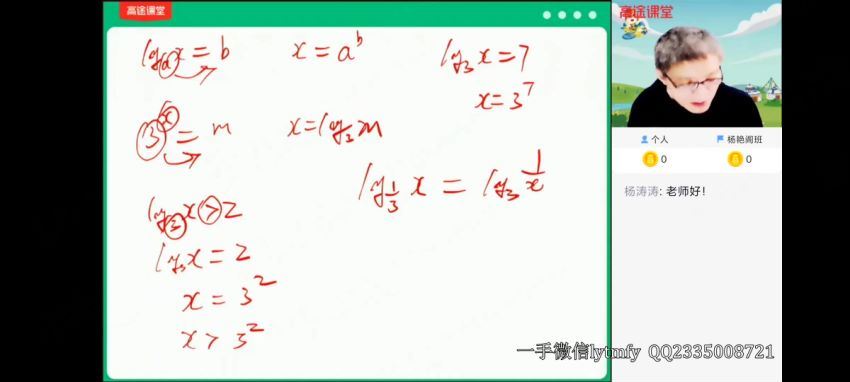 高途课堂
高途课堂
log_a x = b
x = a^b
log_3 x = 7
x = 3^7
3^x = m
x = log_3 m
log_{1/3} x = log_3 1/x
log_3 x > 2
log_3 x = 2
x = 3^2
x > 3^2
个人
杨艳阁班
0
0
杨涛涛: 老师好!
一手微信lytmfy QQ2335008721